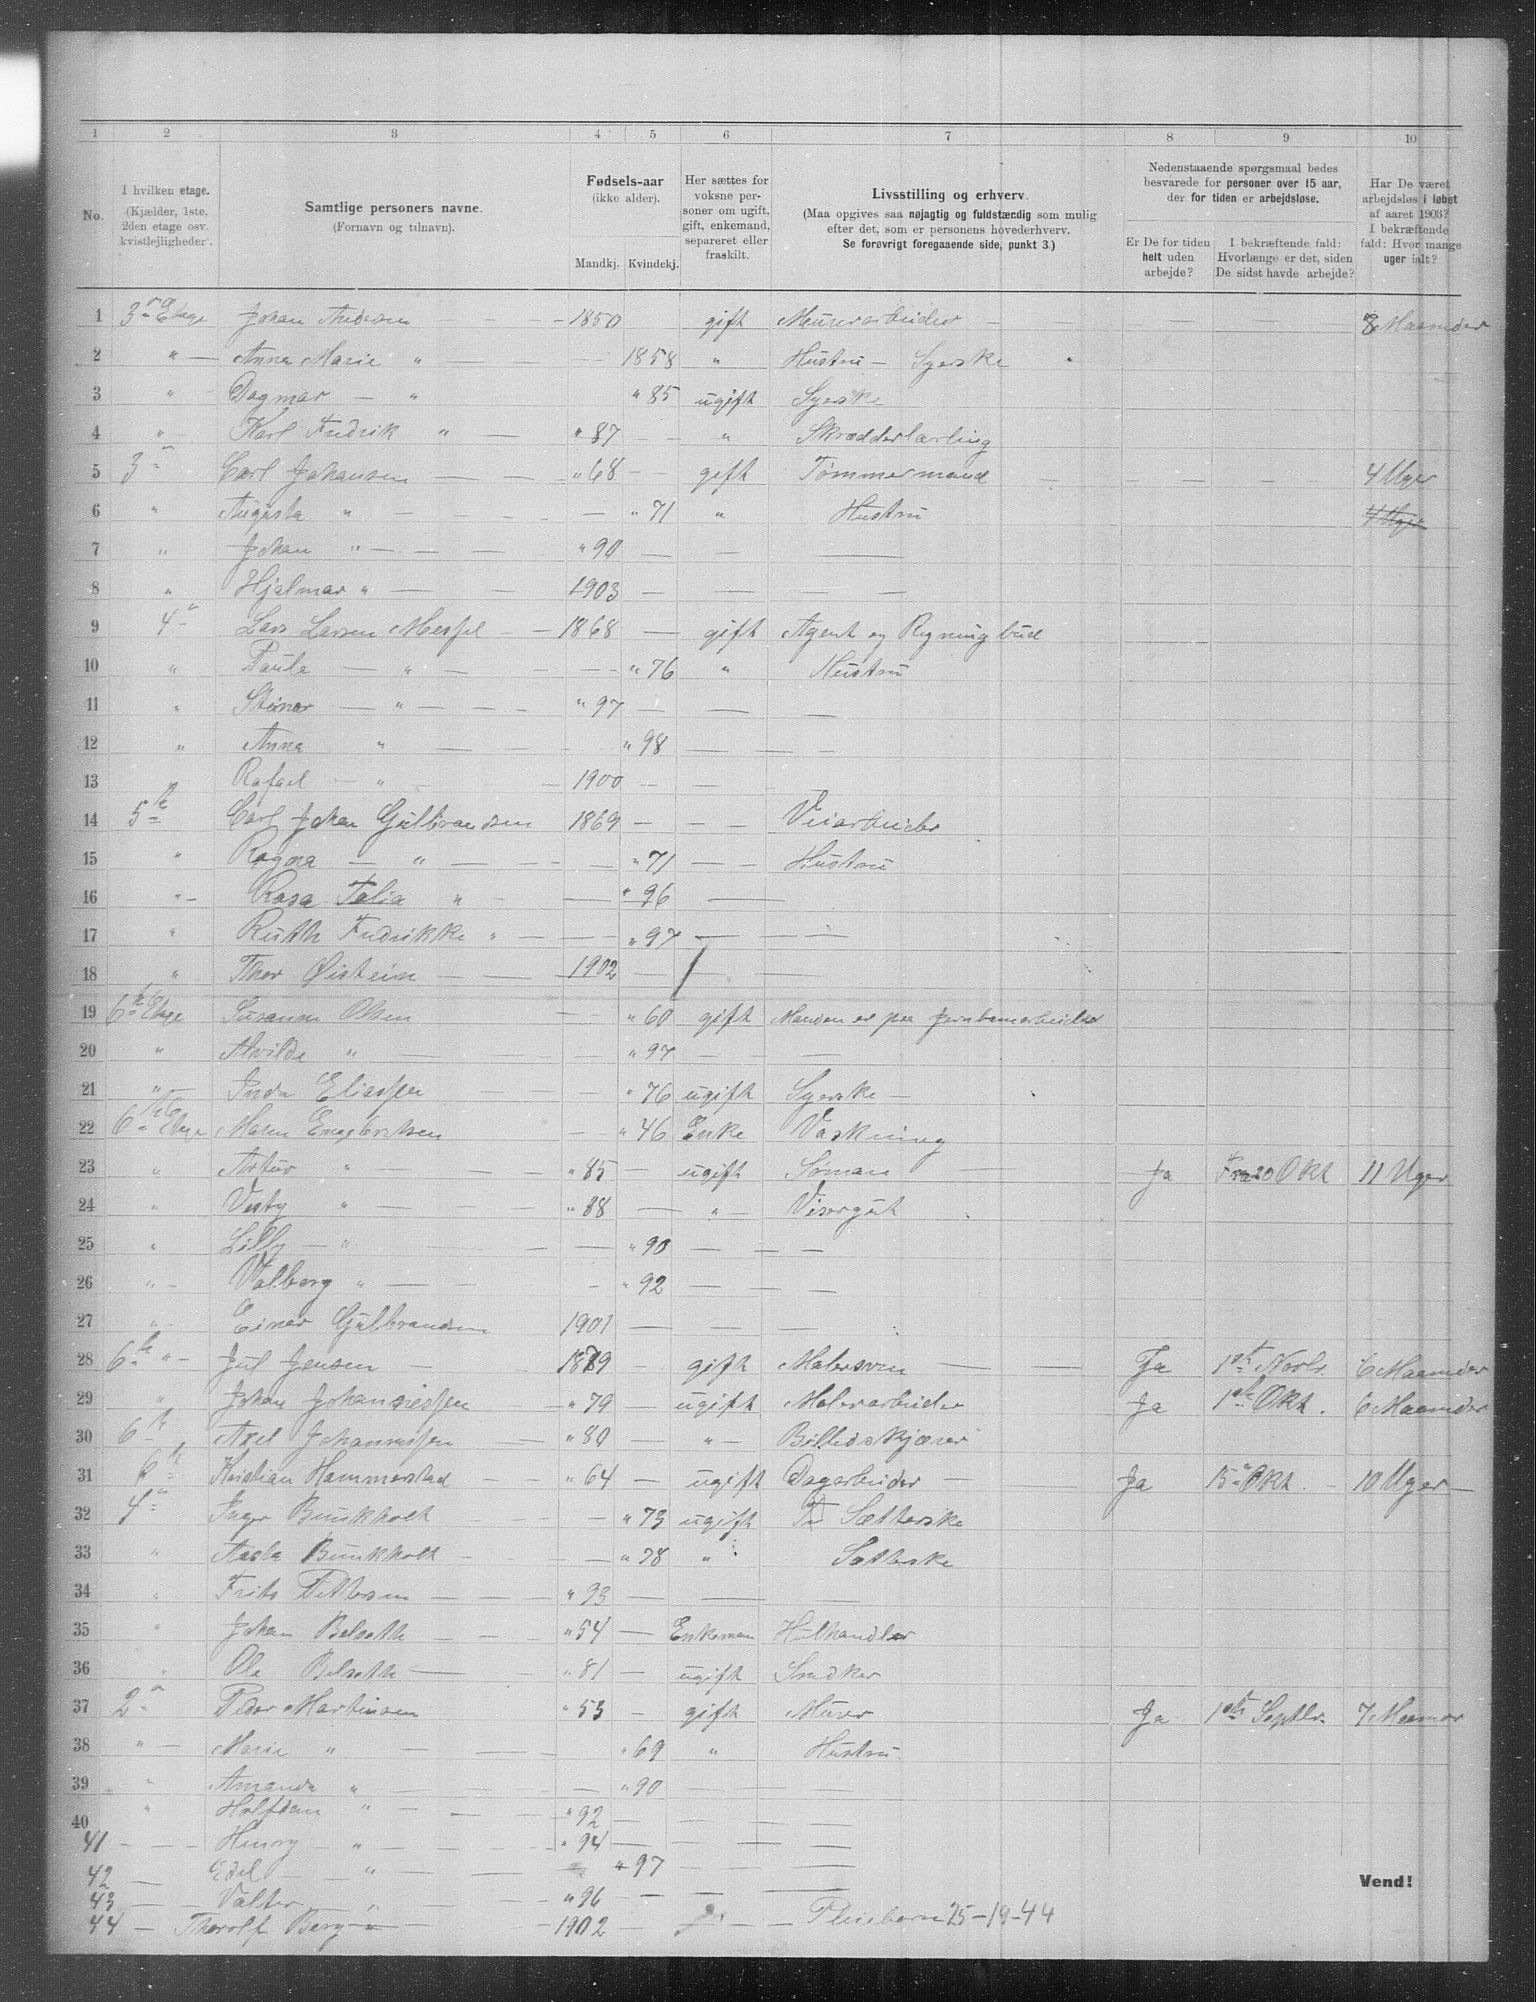 1 2 3 4 5 6 7 8 9 10
No.
I hvilken etage.
(Kjælder, 1ste,
2den etage osv.
kvistlejligheder.
Samtlige personers navne.
(Fornavn og tilnavn).
Fødsels-aar
(ikke alder).
Mandkj. Kvindekj.
Her sættes for
voksne per-
soner om ugift,
gift, enkemand,
separeret eller
fraskilt.
Livsstilling og erhverv.
(Maa opgives saa nøjagtig og fuldstændig som mulig
efter det, som er personens hovederhverv.
Se forøvrigt foregaaende side, punkt 3.)
Nedenstaaende spørgsmaal bedes
besvarede for personer over 15 aar,
der for tiden er arbejdsløse.
Er De for tiden
helt uden
arbejde?
I bekræftende fald:
Hvorlænge er det, siden
De sidst havde arbejde?
Har De været
arbejdsløs i løbet
af aaret 1903?
I bekræftende
fald: Hvor mange
uger ialt?
1 3 Etage Johan Andersen — 1850 gift Murerarbeider — 8 Maaneder
2 " — Anna Marie " — 1858 " Hustru — Syerske
3 " Dagmar — " "85 ugift Syerske
4 " Karl Fredrik " — "87 — " Skrædderlærling
5 3 Carl Johansen — "68 — gift Tømmermand — 4 Uger
6 " Augusta " — "71 " Hustru 4 Uger
7 " Johan " — "90 — — —
8 " Hjalmar " — 1903 — — —
9 4 Lars Larsen — 1868 — gift Agent og Regningbud
10 " Paula — " — "76 " Hustru
11 " Steinar — " — "97 — — —
12 " Anna " — "98 — — —
13 " Rafael — " — 1900 — —
14 5te Carl Johan Gulbrandsen 1869 — — Veiarbeider
15 " Ragna — " — "71 — Hustru
16 " — Rosa Talia " — "96 —
17 " Ruth Fredrikke " — "97 — —
18 " Thor Øistein — 1902 — —
19 6te Etage Susanne Olsen — "60 gift Manden er paa Jernbanearbeide
20 " Alvilde " — "97 — —
21 " Inda Eliassen — "76 ugift Syerske —
22 6te Etage Maren Engebretsen — "46 Enke Vaskning
23 " Artur " — "85 — ugift Sømand — Ja Fra 20 Okt 11 Uger
24 " " — "88 — " Visergut
25 " Lilly — " — "90 — — —
26 " — Valborg " — "92 — —
27 " Einar Gulbrandsen 1901 — — —
28 6te " — Jul Jensen — 1879 — gift Malersven — Ja 1ste Novbr. 6 Maaneder
29 " Johan Johannessen "79 — ugift Malerarbeider Ja 1ste Okt. 6 Maaneder
30 6te Axel Johannessen — "80 — " — Billedskjærer
31 6te Kristian Hammerstad — "64 — ugift Dagarbeider — Ja 15 Okt. — 10 Uger —
32 4 Inger Bunkholt — "73 ugift Sætterske
33 " Aasta Bunkholt — "78 " Sætterske
34 " Frits Pettersen — "93 — — —
35 " Johan Belseth — "54 — Enkeman
36 " Ole Belseth — "81 — ugift Snedker
37 2 Peder Martinsen "53 — gift Murer Ja 1ste Septbr. 7 Maaneder
38 " — Marie " — "69 " Hustru
39 " Amanda " — "90 — —
40 " Halfdan " — "92 — —
41 — Henry — " — "94 — — —
42 — Edel — " — "97 — —
43 — Valter — " — "96 — — —
44 — Thorolf Berg — 1902 — — Pleiebarn 25-19-44
Vend!